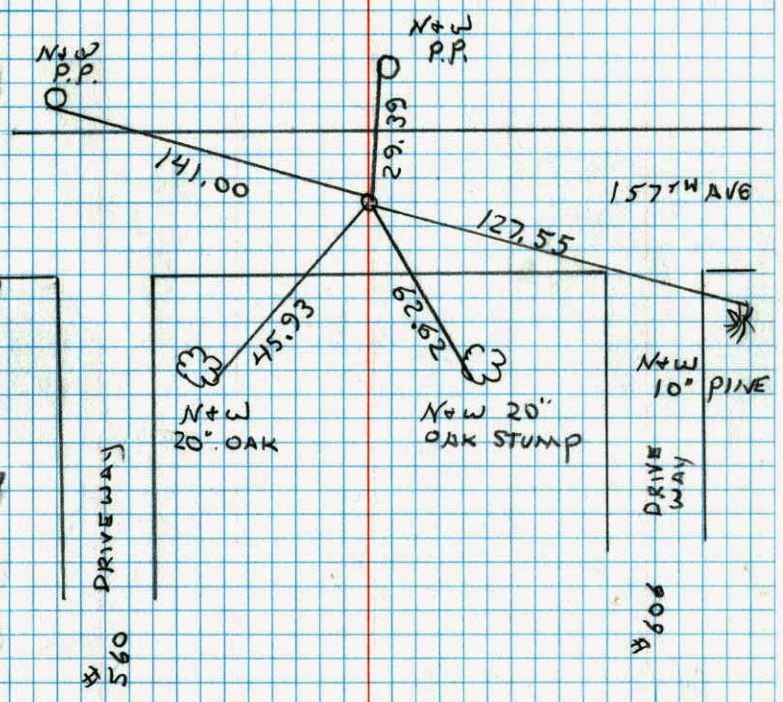 N+W
P.P.
N+W
P.P.
29.39
141.00
157TH AVE
127.55
45.93
62.62
N+W
10" PINE
N+W
20" OAK
N+W 20"
OAK STUMP
DRIVEWAY
DRIVE
WAY
#560
#606